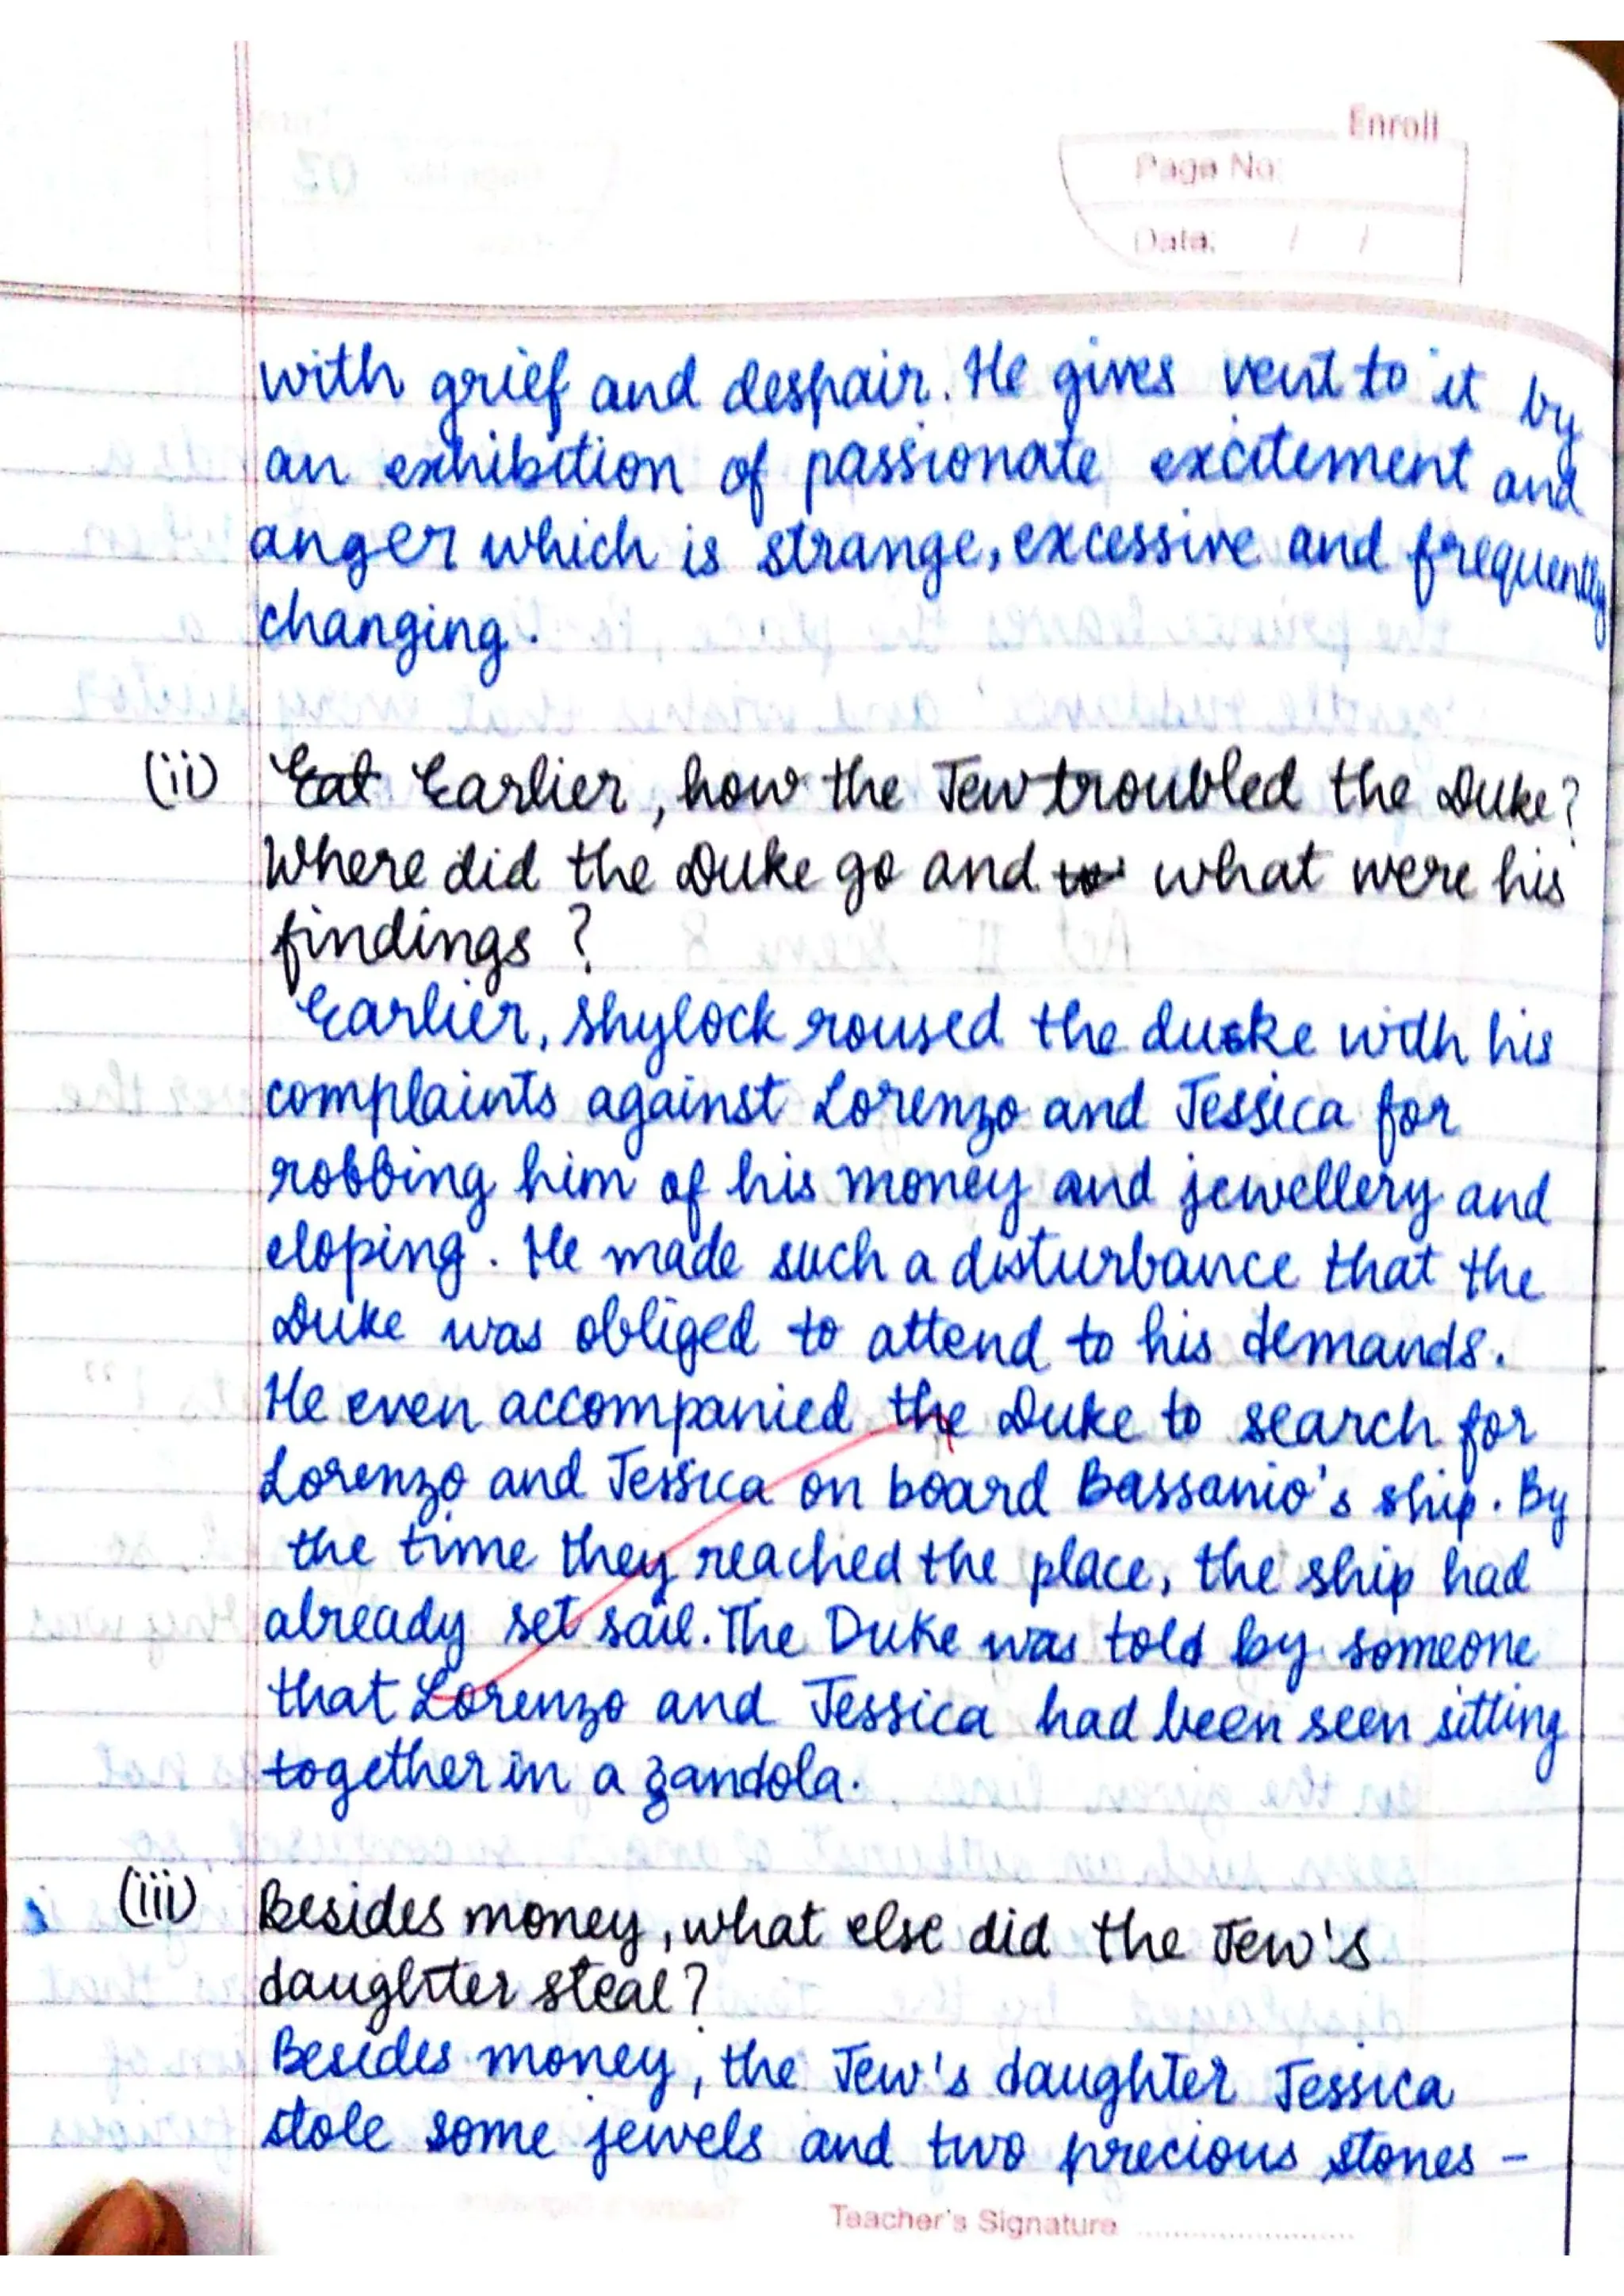 Enroll
Page No:
Date: / /
with grief and despair. He gives vent to it by
an exhibition of passionate excitement and
anger which is strange, excessive and frequently
changing.
(ii) Eat Earlier, how the Jew troubled the Duke?
Where did the Duke go and what were his
findings?
Earlier, Shylock roused the duke with his
complaints against Lorenzo and Jessica for
robbing him of his money and jewellery and
eloping. He made such a disturbance that the
Duke was obliged to attend to his demands.
He even accompanied the Duke to search for
Lorenzo and Jessica on board Bassanio's ship. By
the time they reached the place, the ship had
already set sail. The Duke was told by someone
that Lorenzo and Jessica had been seen sitting
together in a gandola.
(iii) Besides money, what else did the Jew's
daughter steal?
Besides money, the Jew's daughter Jessica
stole some jewels and two precious stones -
Teacher's Signature